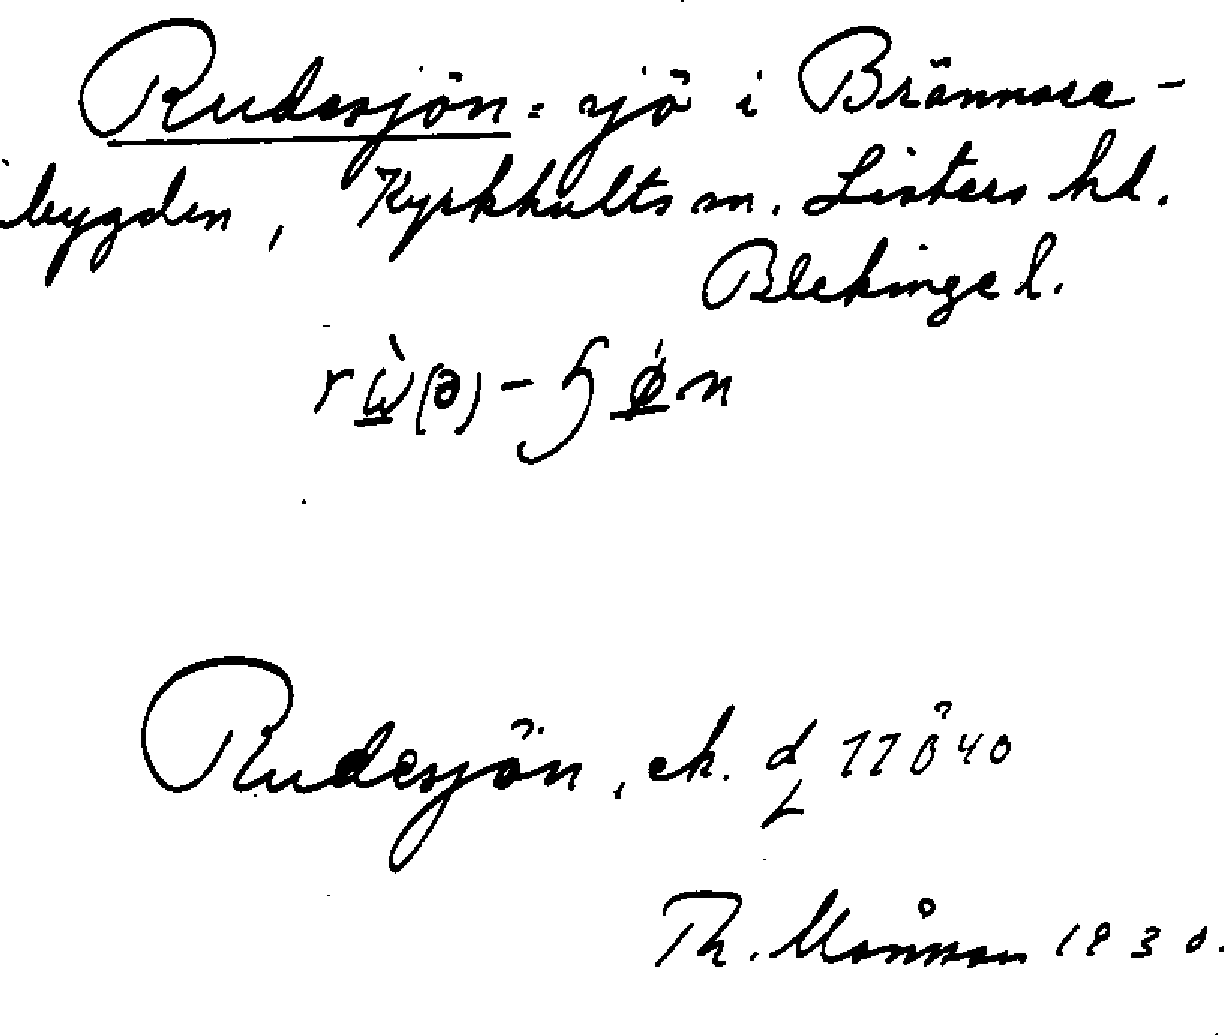 Rudesjön = sjö i Brännare-
bygden, Kyrkhults sn. Listers hd.
Blekinge l.
Rudesjön, ek.
Th. Månsson 1930.